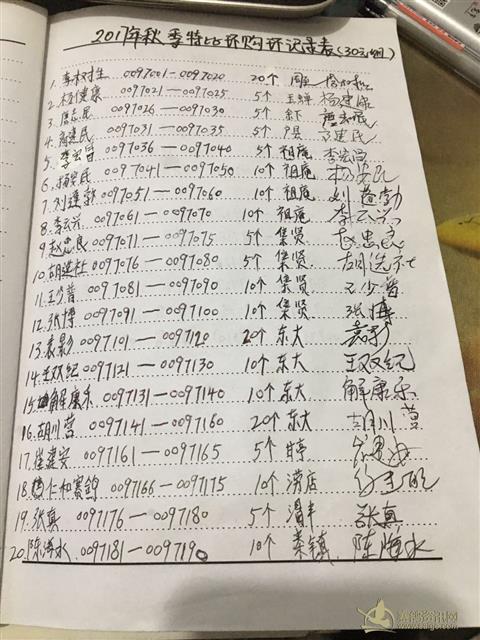 2017年秋季特比环购环记录表(30元/个)
1. 李树生 0097001—0097020 20个
2. 杨健康 0097021—0097025 5个 杨建康
3. 唐忠民 0097026—0097030 5个
4. 高建民 0097031—0097035 5个
5. 李宏昌 0097036—0097040 5个 祖庵 李宏昌
6. 杨安民 0097041—0097050 10个 祖庵 杨安民
7. 刘道勃 0097051—0097060 10个 祖庵 刘道勃
8. 李云兴 0097061—0097070 10个 祖庵 李云兴
9. 赵忠良 0097071—0097075 5个 集贤 赵忠良
10. 胡选社 0097076—0097080 5个 集贤 胡选社
11. 王少普 0097081—0097090 10个 集贤 王少普
12. 张博 0097091—0097100 10个 集贤 张博
13. 袁影 0097101—0097120 20个 东大 袁影
14. 王双纪 0097121—0097130 10个 东大 王双纪
15. 解康乐 0097131—0097140 10个 东大 解康乐
16. 胡川营 0097141—0097160 20个 东大 胡川营
17. 0097161—0097165 5个 甘亭
18. 仁和赛鸽 0097166—0097175 10个 涝店
19. 张真 0097176—0097180 5个 渭丰 张真
20. 陈海水 0097181—0097190 10个 秦镇 陈海水